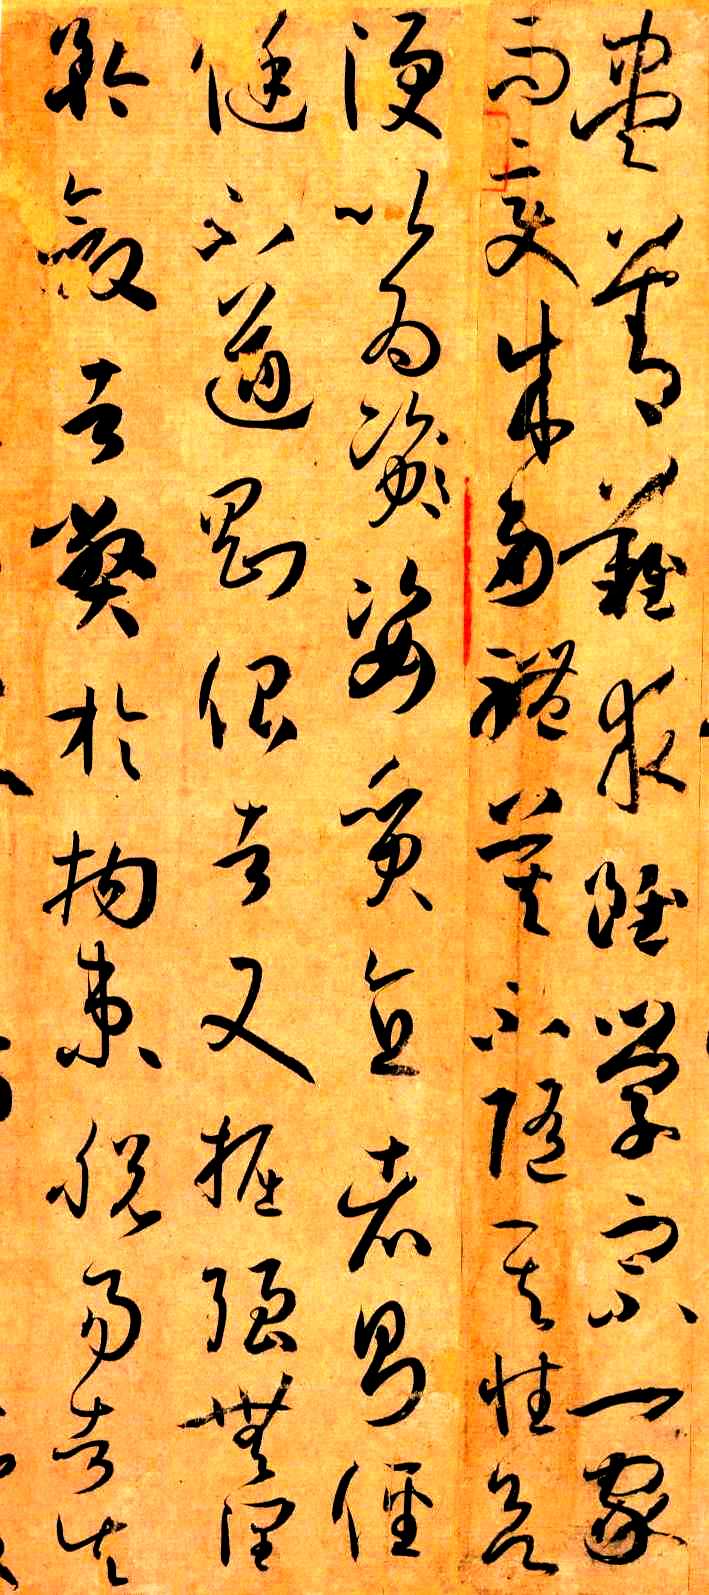 盡善難求雖學宗一家
而變成多體莫不隨其性欲
便以爲資姿質直者則俓
侹不遒剛佷者又掘強無潤
矜斂者弊於拘束脫易者失